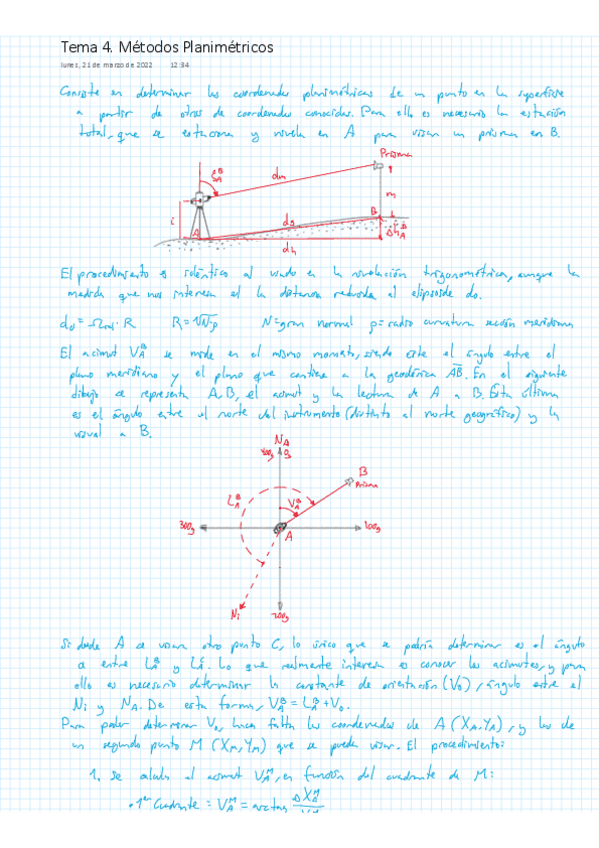 Tema 4. Métodos Planimétricos
lunes, 21 de marzo de 2022 12:34
Consiste en determinar las coordenadas planimétricas de un punto en la superficie
a partir de otros de coordenadas conocidas. Para ello es necesario la estación
total, que se estaciona y nivela en A para visar un prisma en B.
Prisma
ξ_A^B
dm
m
i
A
ds
B
Δh_A^B
dh
El procedimiento es idéntico al usado en la nivelación trigonométrica, aunque la
medida que nos interesa es la distancia reducida al elipsoide do.
R = √Nρ N = gran normal ρ = radio curvatura sección meridiana
El acimut V_A^B se mide en el mismo momento, siendo este el ángulo entre el
plano meridiano y el plano que contiene a la geodésica AB. En el siguiente
dibujo se representa A, B, el acimut y la lectura de A a B. Esta última
es el ángulo entre el norte del instrumento (distinto al norte geográfico) y la
visual a B.
N_A
400g 0g
B
Prisma
L_A^B
V_A^B
300g
100g
A
Ni
200g
Si desde A se visa otro punto C, lo único que se podría determinar es el ángulo
α entre L_A^B y L_A^C. Lo que realmente interesa es conocer los acimutes, y para
ello es necesario determinar la constante de orientación (V₀), ángulo entre el
Ni y N_A. De esta forma, V_A^B = L_A^B + V₀.
Para poder determinar V₀, hacen falta las coordenadas de A (X_A, Y_A), y las de
un segundo punto M (X_M, Y_M) que se pueda visar. El procedimiento:
1. Se calcula el acimut V_A^M, en función del cuadrante de M:
• 1er Cuadrante: V_A^M = arctag ΔX_A^M